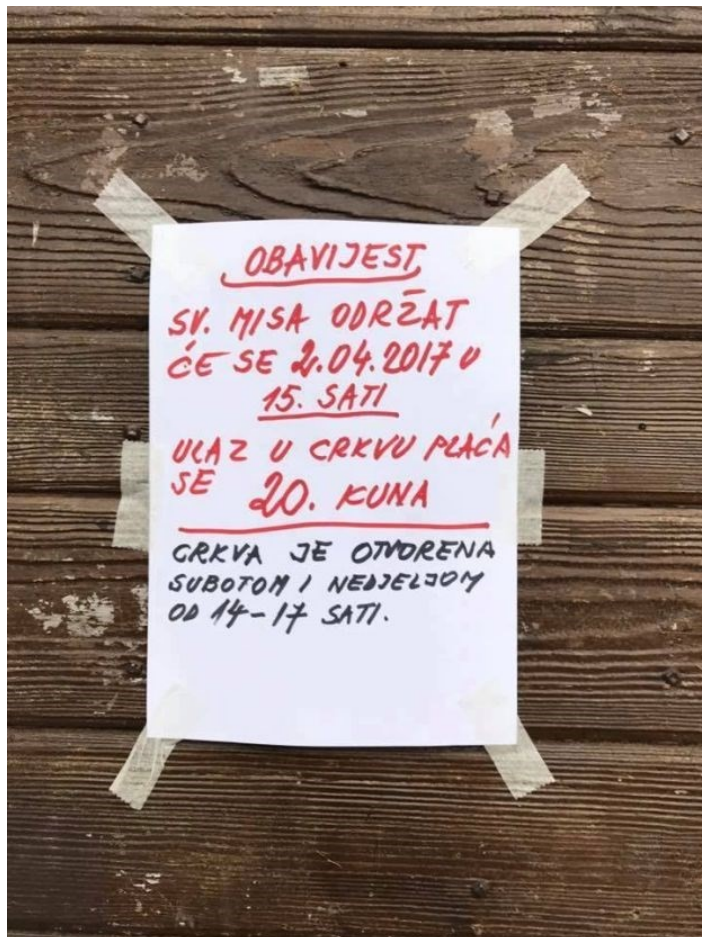 OBAVIJEST
SV. MISA ODRŽAT
ĆE SE 2.04.2017 U
15. SATI
ULAZ U CRKVU PLAĆA
SE 20. KUNA
CRKVA JE OTVORENA
SUBOTOM I NEDJELJOM
OD 14-17 SATI.